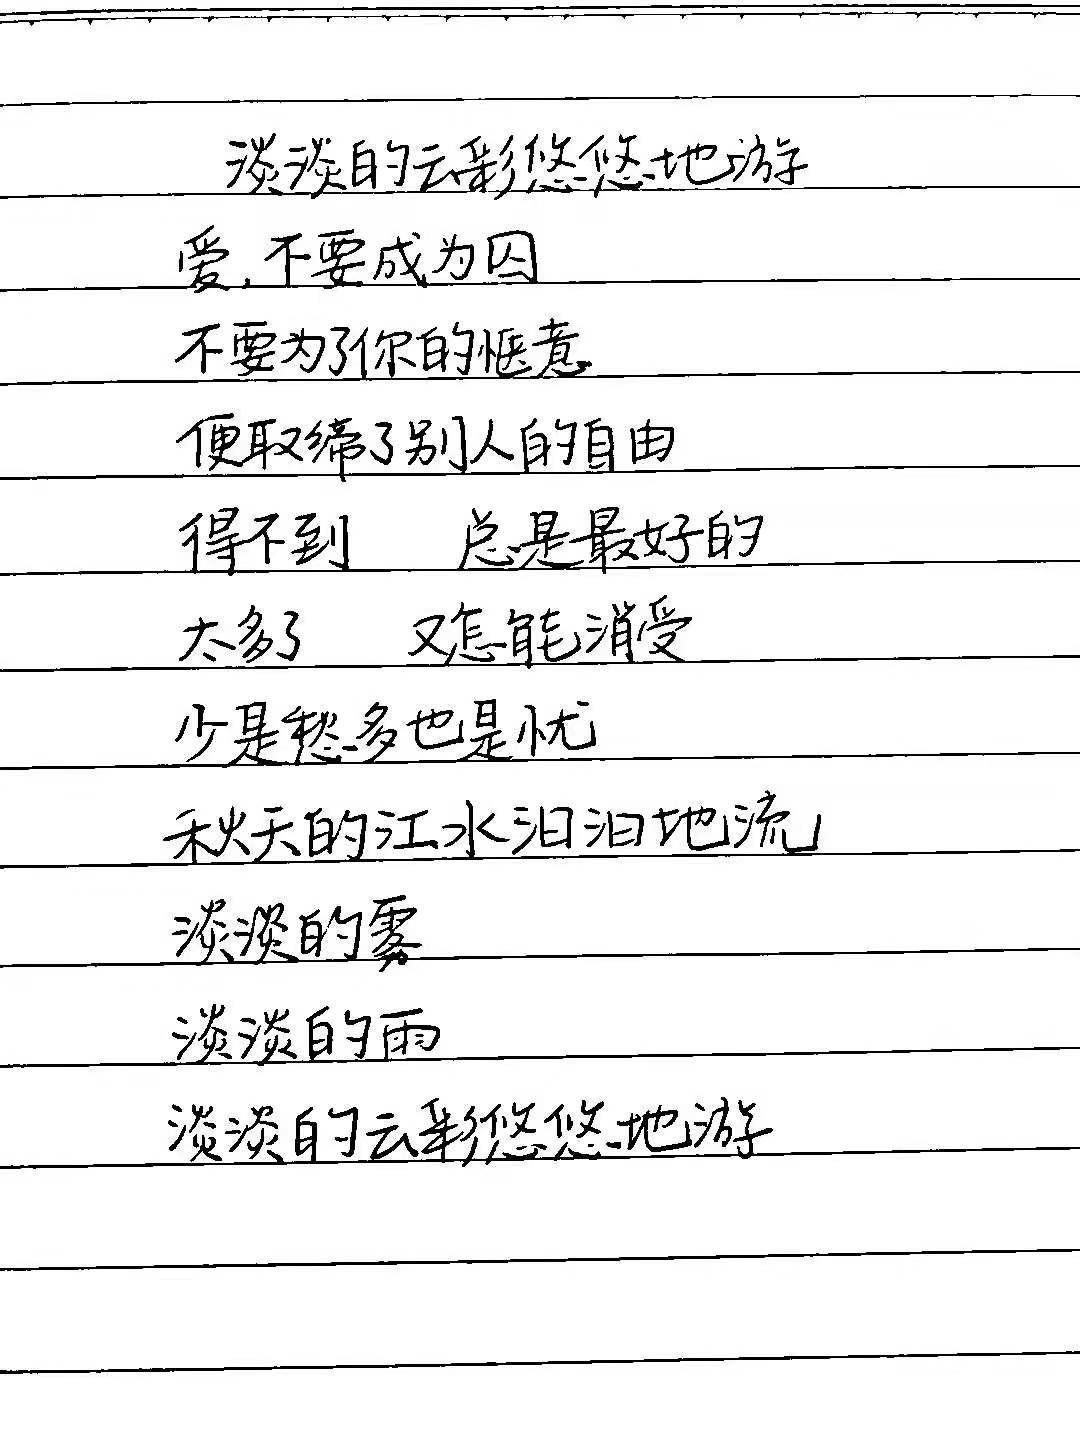 淡淡的云彩悠悠地游
爱,不要成为囚
不要为了你的惬意
便取缔了别人的自由
得不到 总是最好的
太多了 又怎能消受
少是愁多也是忧
秋天的江水汩汩地流
淡淡的雾
淡淡的雨
淡淡的云彩悠悠地游